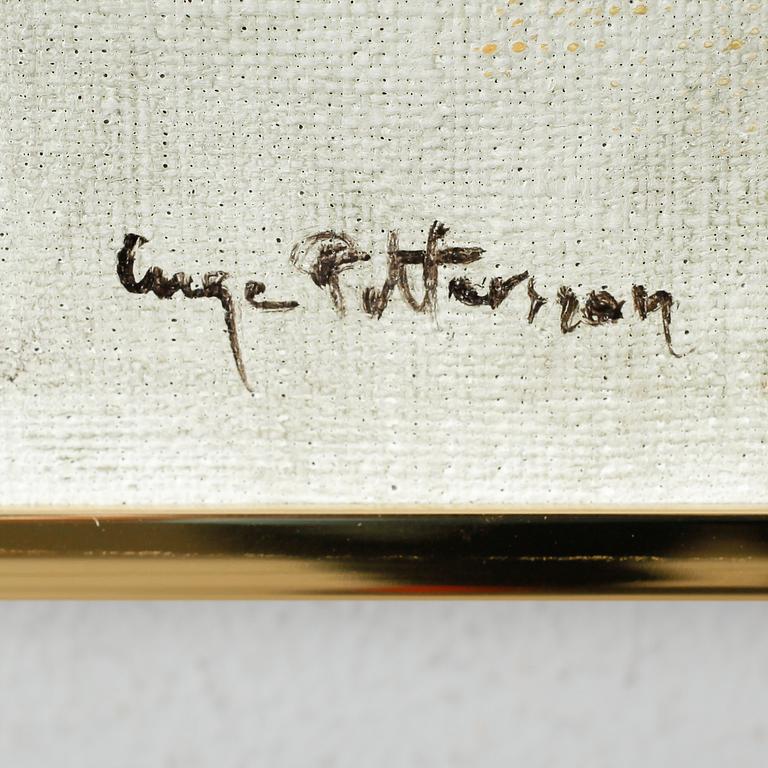 Inge Pettersson